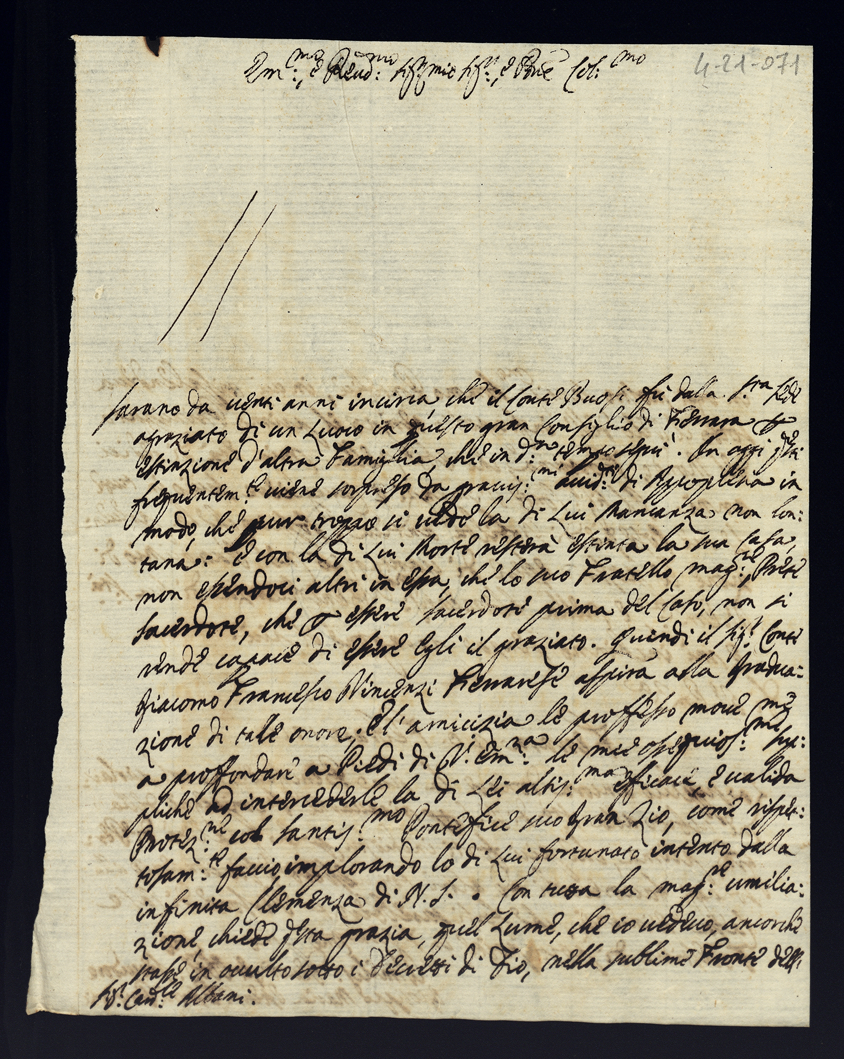 4-21-071
Em:mo, e Reud:mo Sig:r mio Sig:r, e Prõne Col:mo
Sarano da uenti anni incirca che il Conte Buosi fù dalla S:ta Sede
agraziato di un Luoco in questo gran Consiglio di Ferrara p
estinzione d'altra Famiglia, che in d:o tempo seguì. In oggi q:sti
frequentem:te uiene sorpreso da grauis:mi accid:ti di Apoplesia in
modo, che pur troppo si uede la di Lui Mancanza non lon:
tana: e con la di Lui Morte resterà estinta la sua Casa,
non essendoci altri in essa, che lo suo Fratello mag:re, Prete
Sacerdote, che p essere sacerdote prima del Caso, non si
rende capace di essere Egli il graziato. Quindi il Sig:r Conte
Giacomo Francesco Vincenzi Ferrarese aspira alla gradua:
zione di tale onore. E l'amicizia le professo moue me
a proffondare a Piedi di V: Em:za le mie ossequios:me sup:
pliche ad intercederle la di Lei altis:ma eficace, e ualida
Protez:ne col Santis:mo Pontefice suo Gran Zio, come rispet:
tosam:te faccio, implorando lo di Lui fortunato intento dalla
infinita Clemenza di N. S. Con tutta la mag:re umilia:
zione chiede q:sta grazia, quel Lume, che io uedeuo, ancorche
stasse in occulto sotto i Decreti di Dio, nella sublime Fronte dell
S:r Card:le Albani.